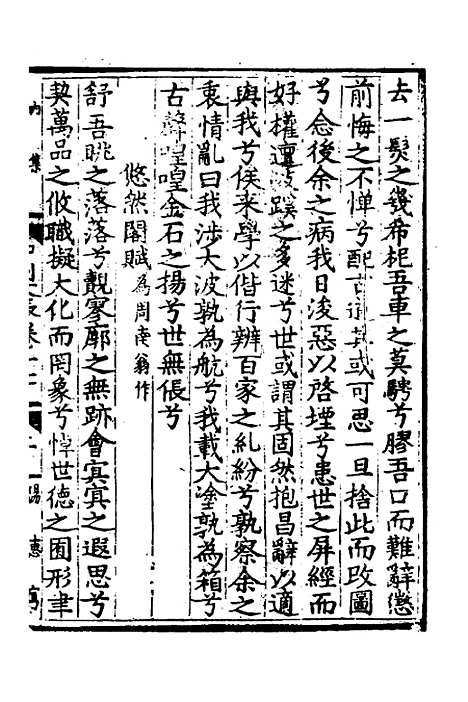 去一髮之幾希柅吾車之莫騁兮膠吾口而難辭懲
前悔之不憚兮配古道其或可思一旦捨此而改圖
兮念後余之病我日浚惡以啓堙兮患世之屏經而
好權邅岐蹊之多迷兮世或謂其固然抱昌辭以適
與我兮俟来學以偕行辨百家之糺紛兮孰察余之
衷情亂曰我涉大波孰為航兮我載大塗孰為箱兮
古聲喤喤金石之揚兮世無倀兮
悠然閣賦為周南翁作
舒吾眺之落落兮觀寥廓之無跡會㝠㝠之遐思兮
契萬品之攸職擬大化而罔象兮悼世德之囿形聿